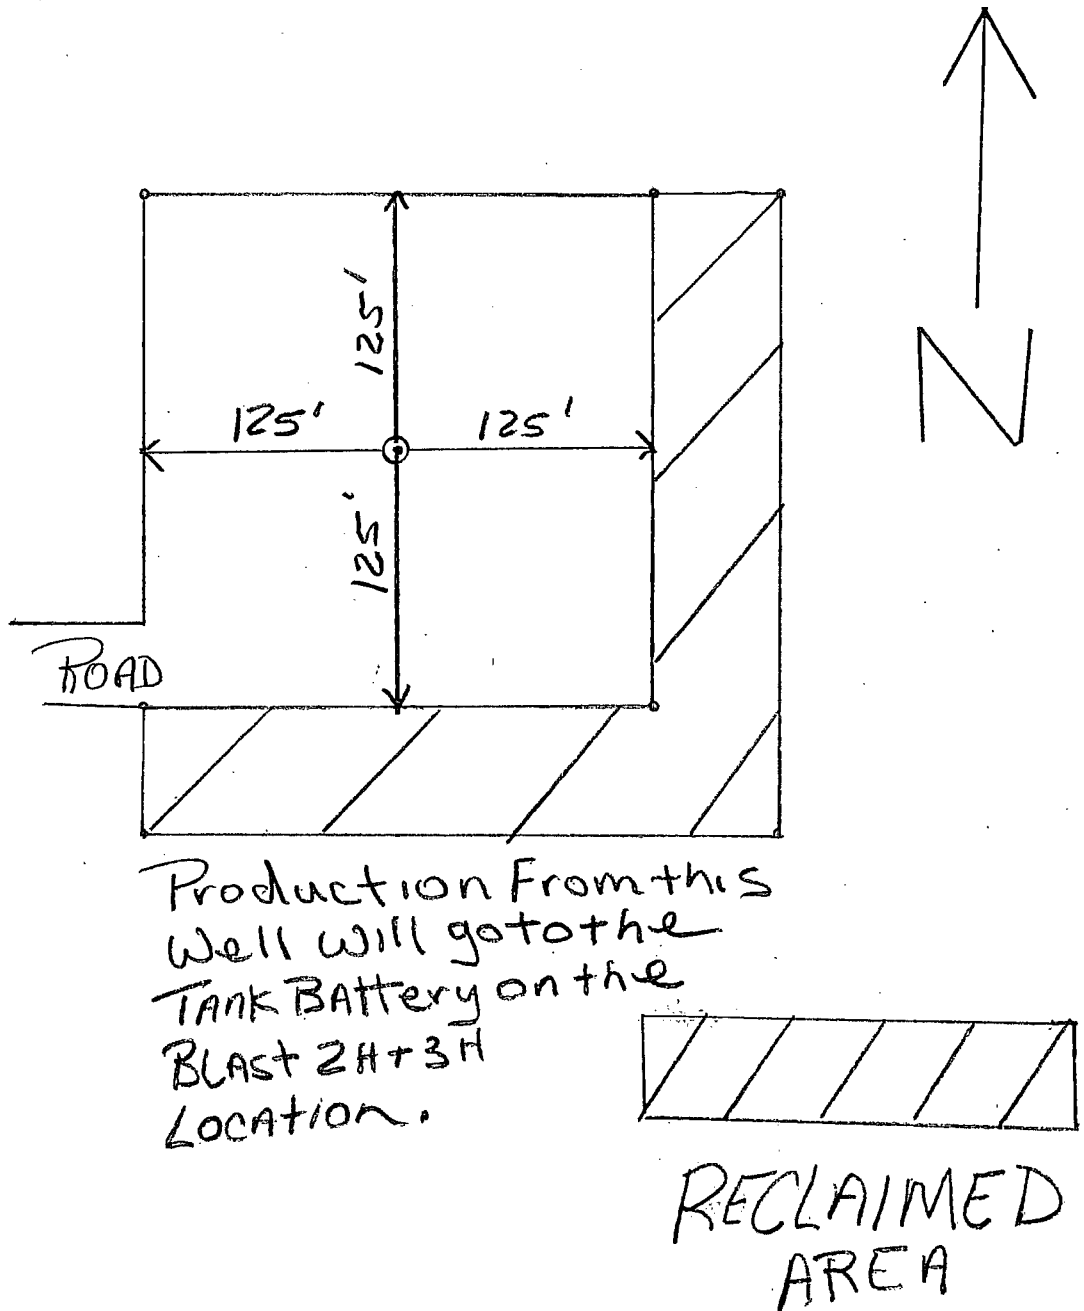 N
125'
125'
125'
125'
ROAD
Production From this
Well Will go to the
TANK BAttery on the
BLAst 2H + 3H
LOCAtion.
RECLAIMED
AREA